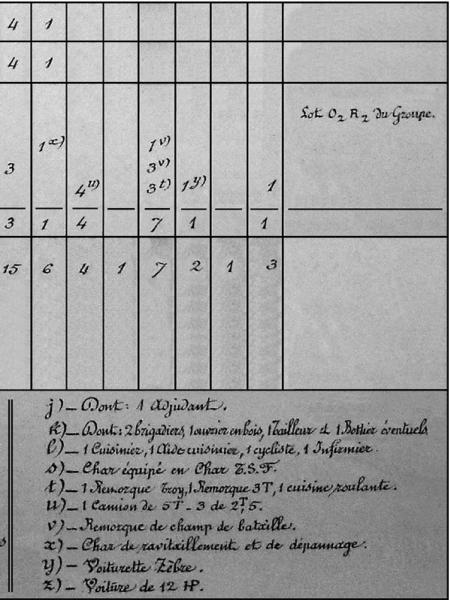 4 1
4 1
Lot O2 R2 du Groupe.
1x) 1v)
3 3v)
4u) 3t) 1y) 1
3 1 4 7 1 1
15 6 4 1 7 2 1 3
j) _ Dont : 1 Adjudant.
k) _ Dont : 2 brigadiers, 1 ouvrier en bois, 1 Tailleur et 1 Bottier éventuels
l) _ 1 Cuisinier, 1 Aide cuisinier, 1 cycliste, 1 Infirmier.
s) _ Char équipé en Char T.S.F.
t) _ 1 Remorque Troy, 1 Remorque 3T, 1 cuisine roulante.
u) _ 1 Camion de 5T - 3 de 2T,5.
v) _ Remorque de champ de bataille.
x) _ Char de ravitaillement et de dépannage.
y) _ Voiturette Zèbre.
z) _ Voiture de 12 HP.